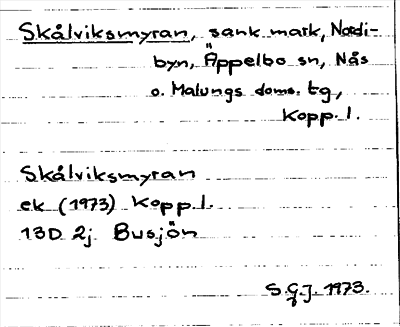 Skålviksmyran, sank mark, Nordi-
byn, Äppelbo sn, Nås
o. Malungs doms. tg,
Kopp. l.
Skålviksmyran
ek (1973) Kopp. l.
13D 2j Busjön
S.G.J. 1973.